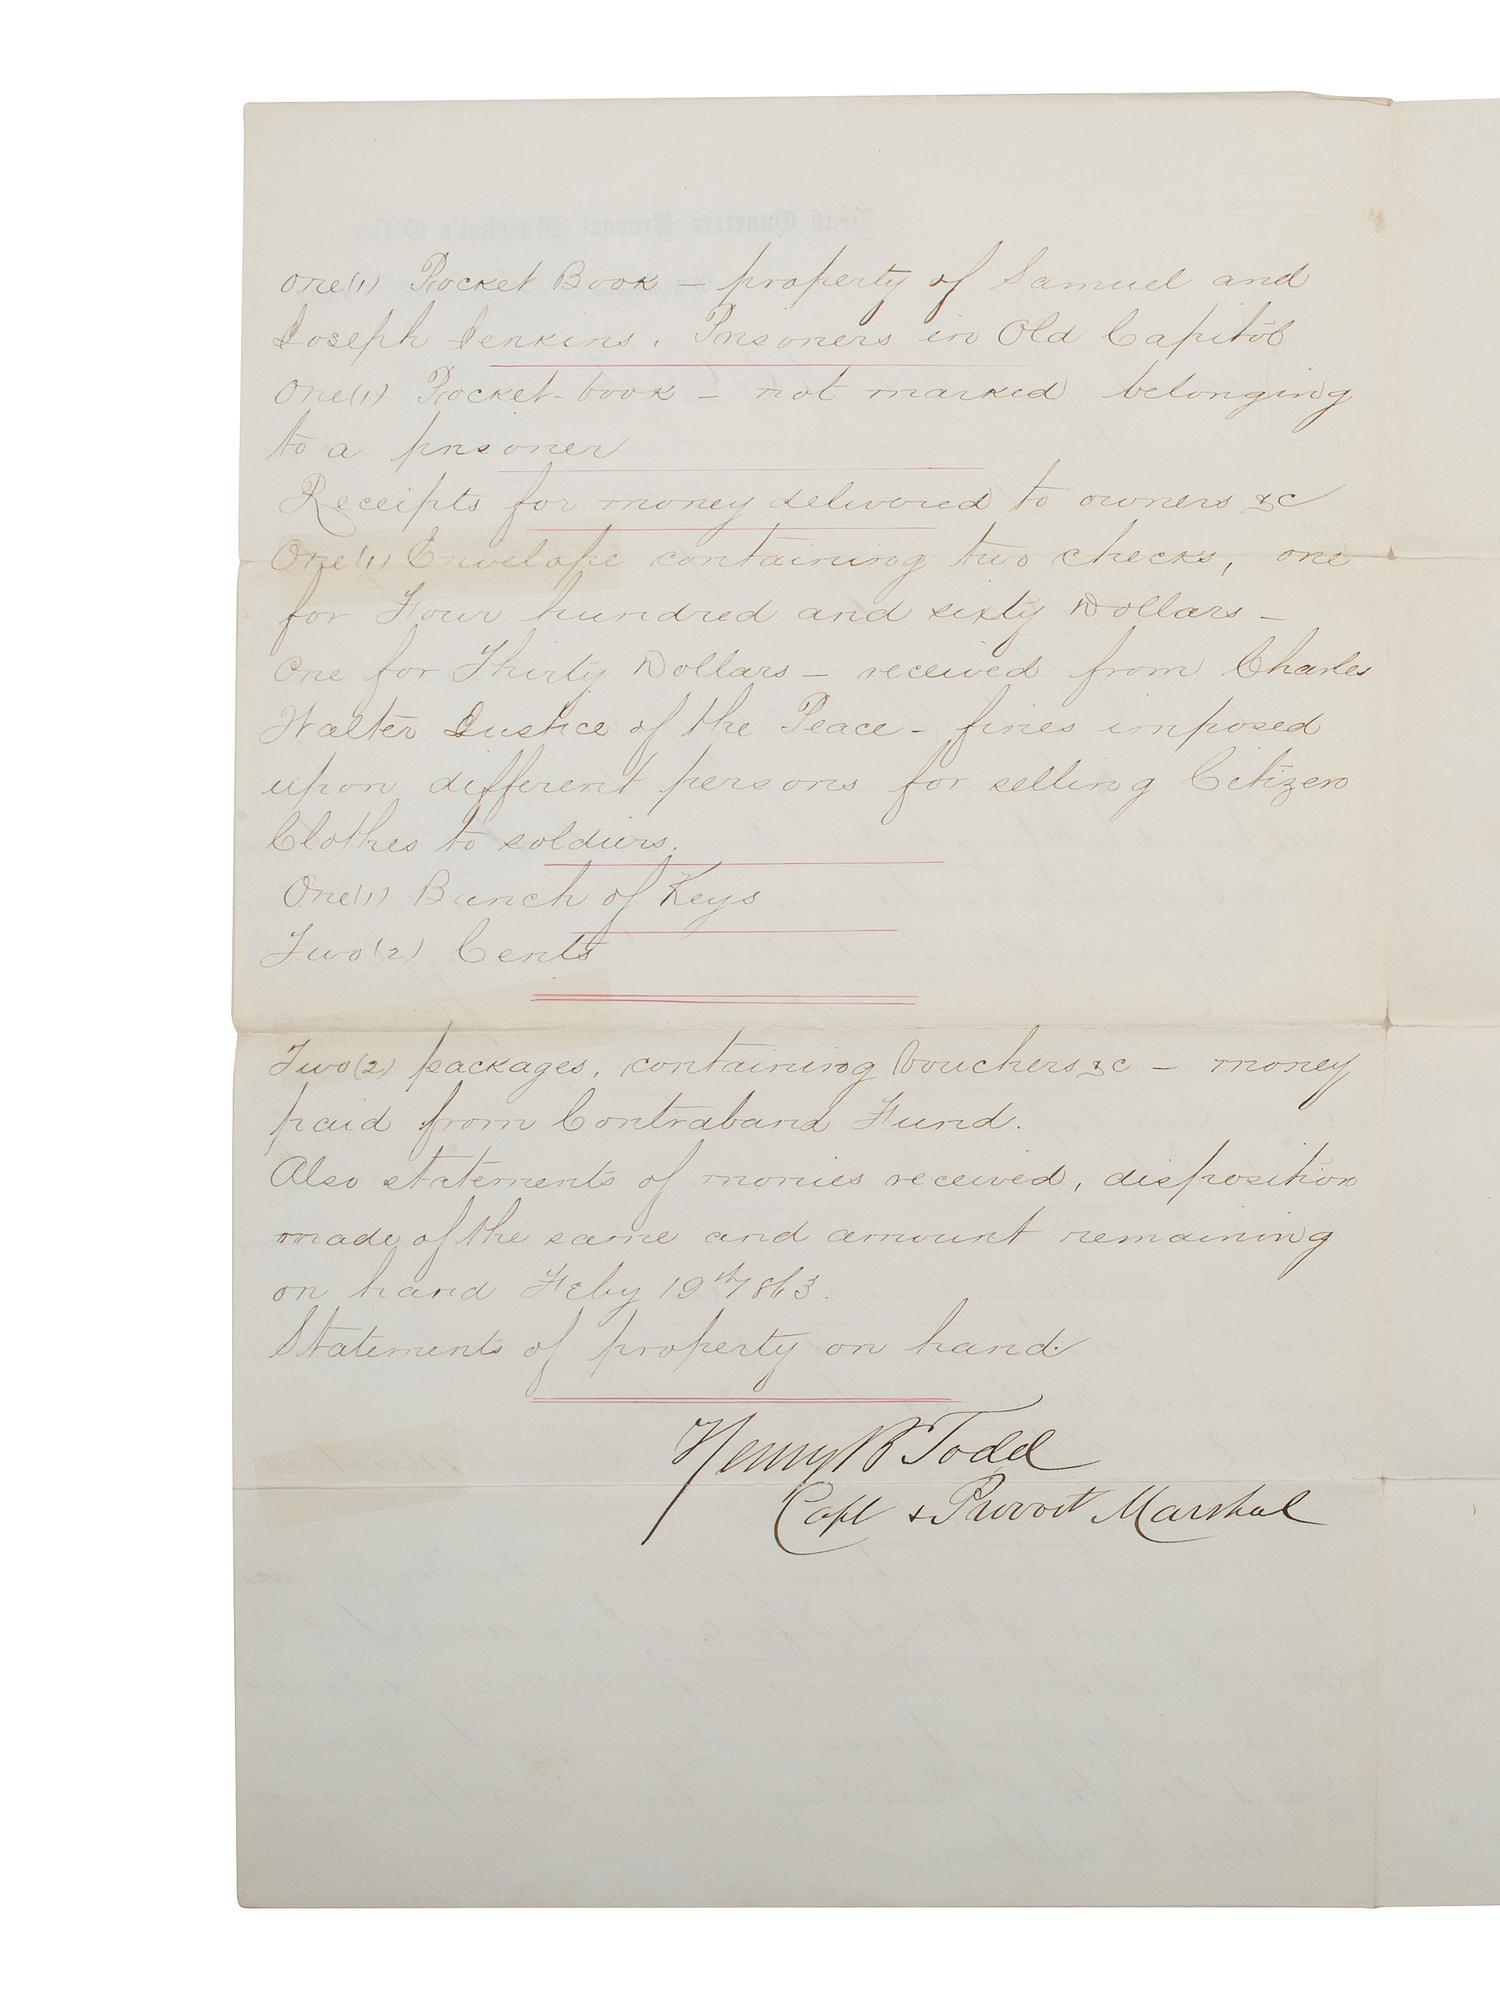 One (1) Pocket Book – property of Samuel and
Joseph Jenkins, Prisoners in Old Capitol
One (1) Pocket-book – not marked belonging
to a prisoner
Receipts for money delivered to owners &c
One (1) Envelope containing two checks, one
for Four hundred and sixty Dollars –
One for Thirty Dollars – received from Charles
Walter Justice of the Peace – fines imposed
upon different persons for selling Citizen
Clothes to soldiers.
One (1) Bunch of Keys
Two (2) Cents
Two (2) packages, containing Vouchers &c – money
paid from Contraband Fund.
Also statements of monies received, disposition
made of the same and amount remaining
on hand Feby 19th 1863.
Statements of property on hand.
Henry B Todd
Capt & Provost Marshal